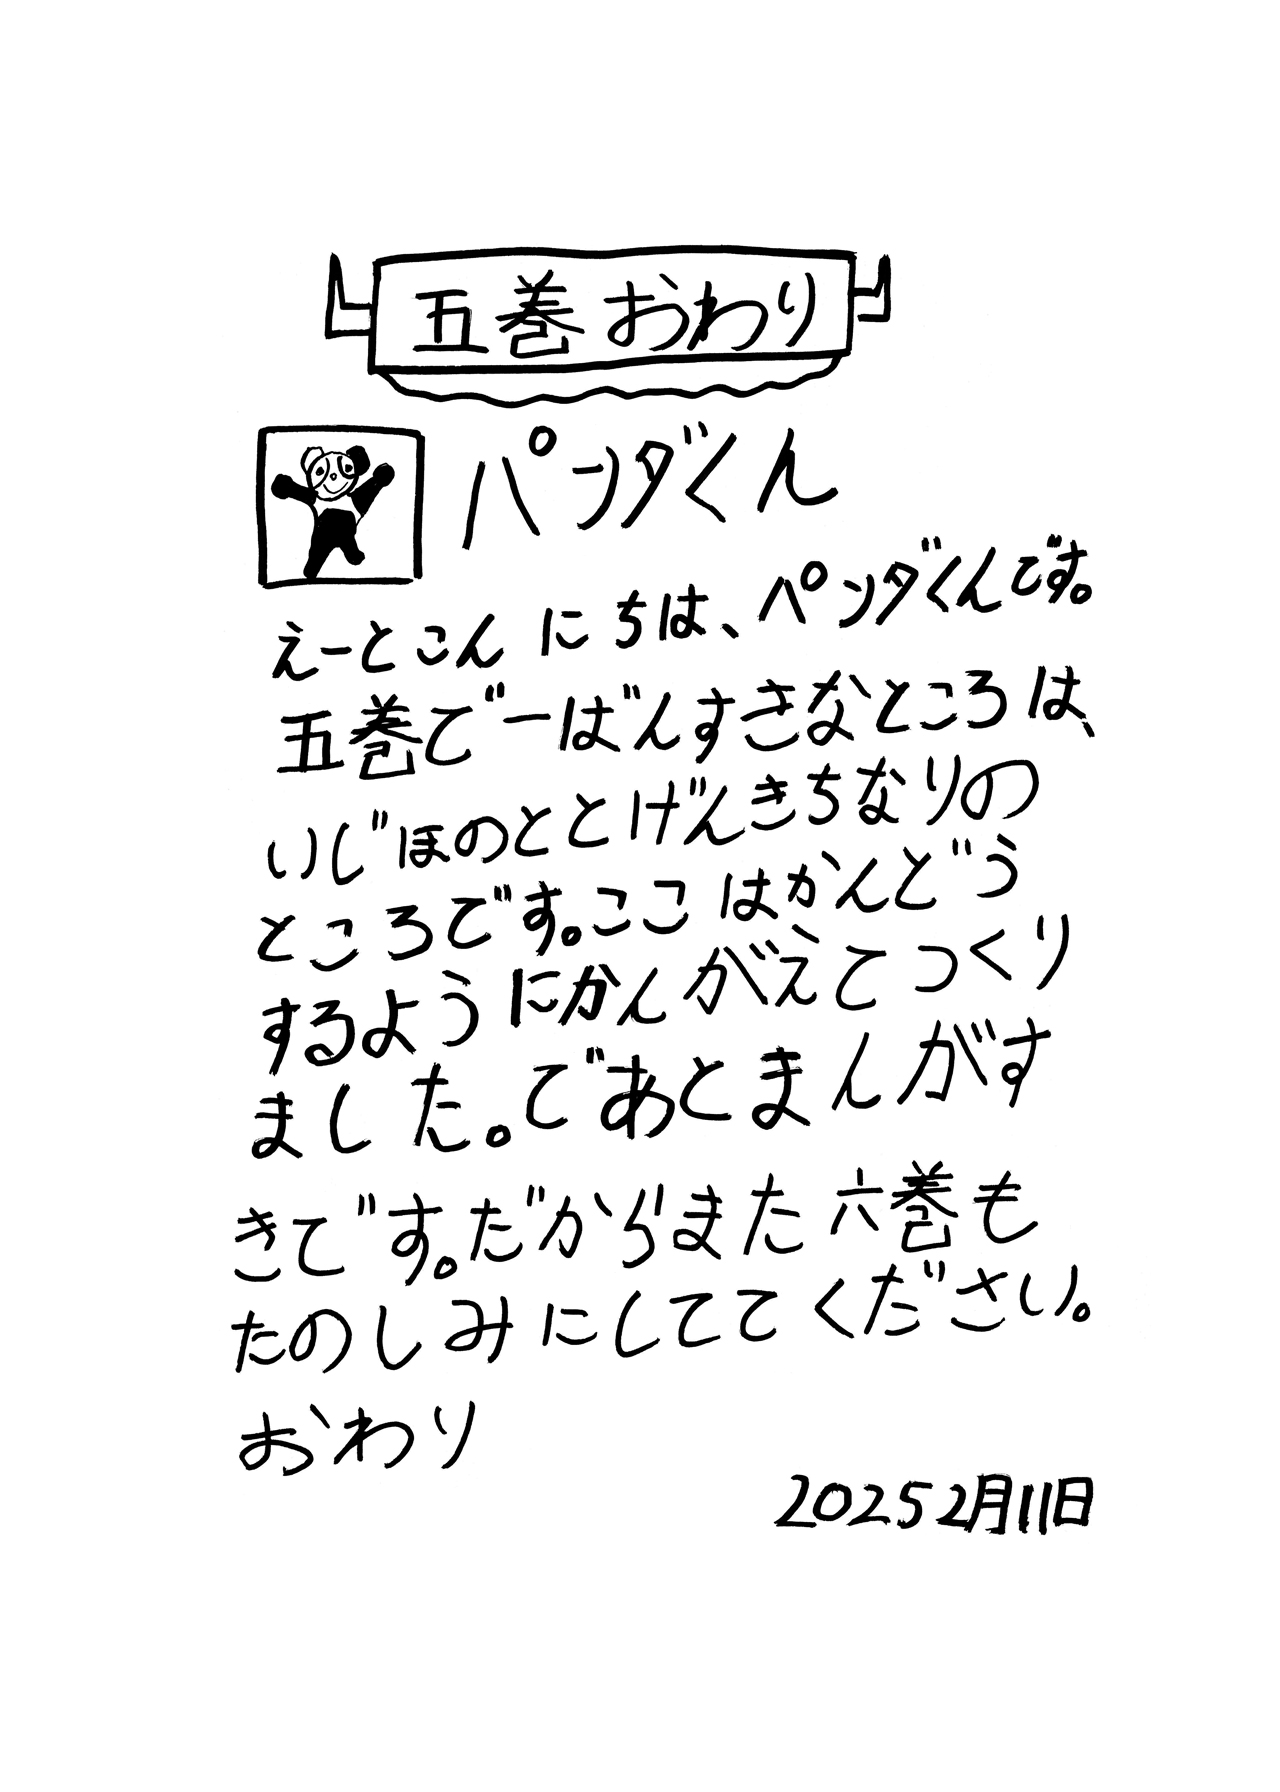 五巻おわり
パンダくん
えーとこんにちは、パンダくんです。
五巻で一ばんすきなところは、
いじほのととげんきちなりの
ところです。ここはかんどう
するようにかんがえてつくり
ました。であとまんがす
きです。だからまた六巻も
たのしみにしててください。
おわり
2025 2月11日